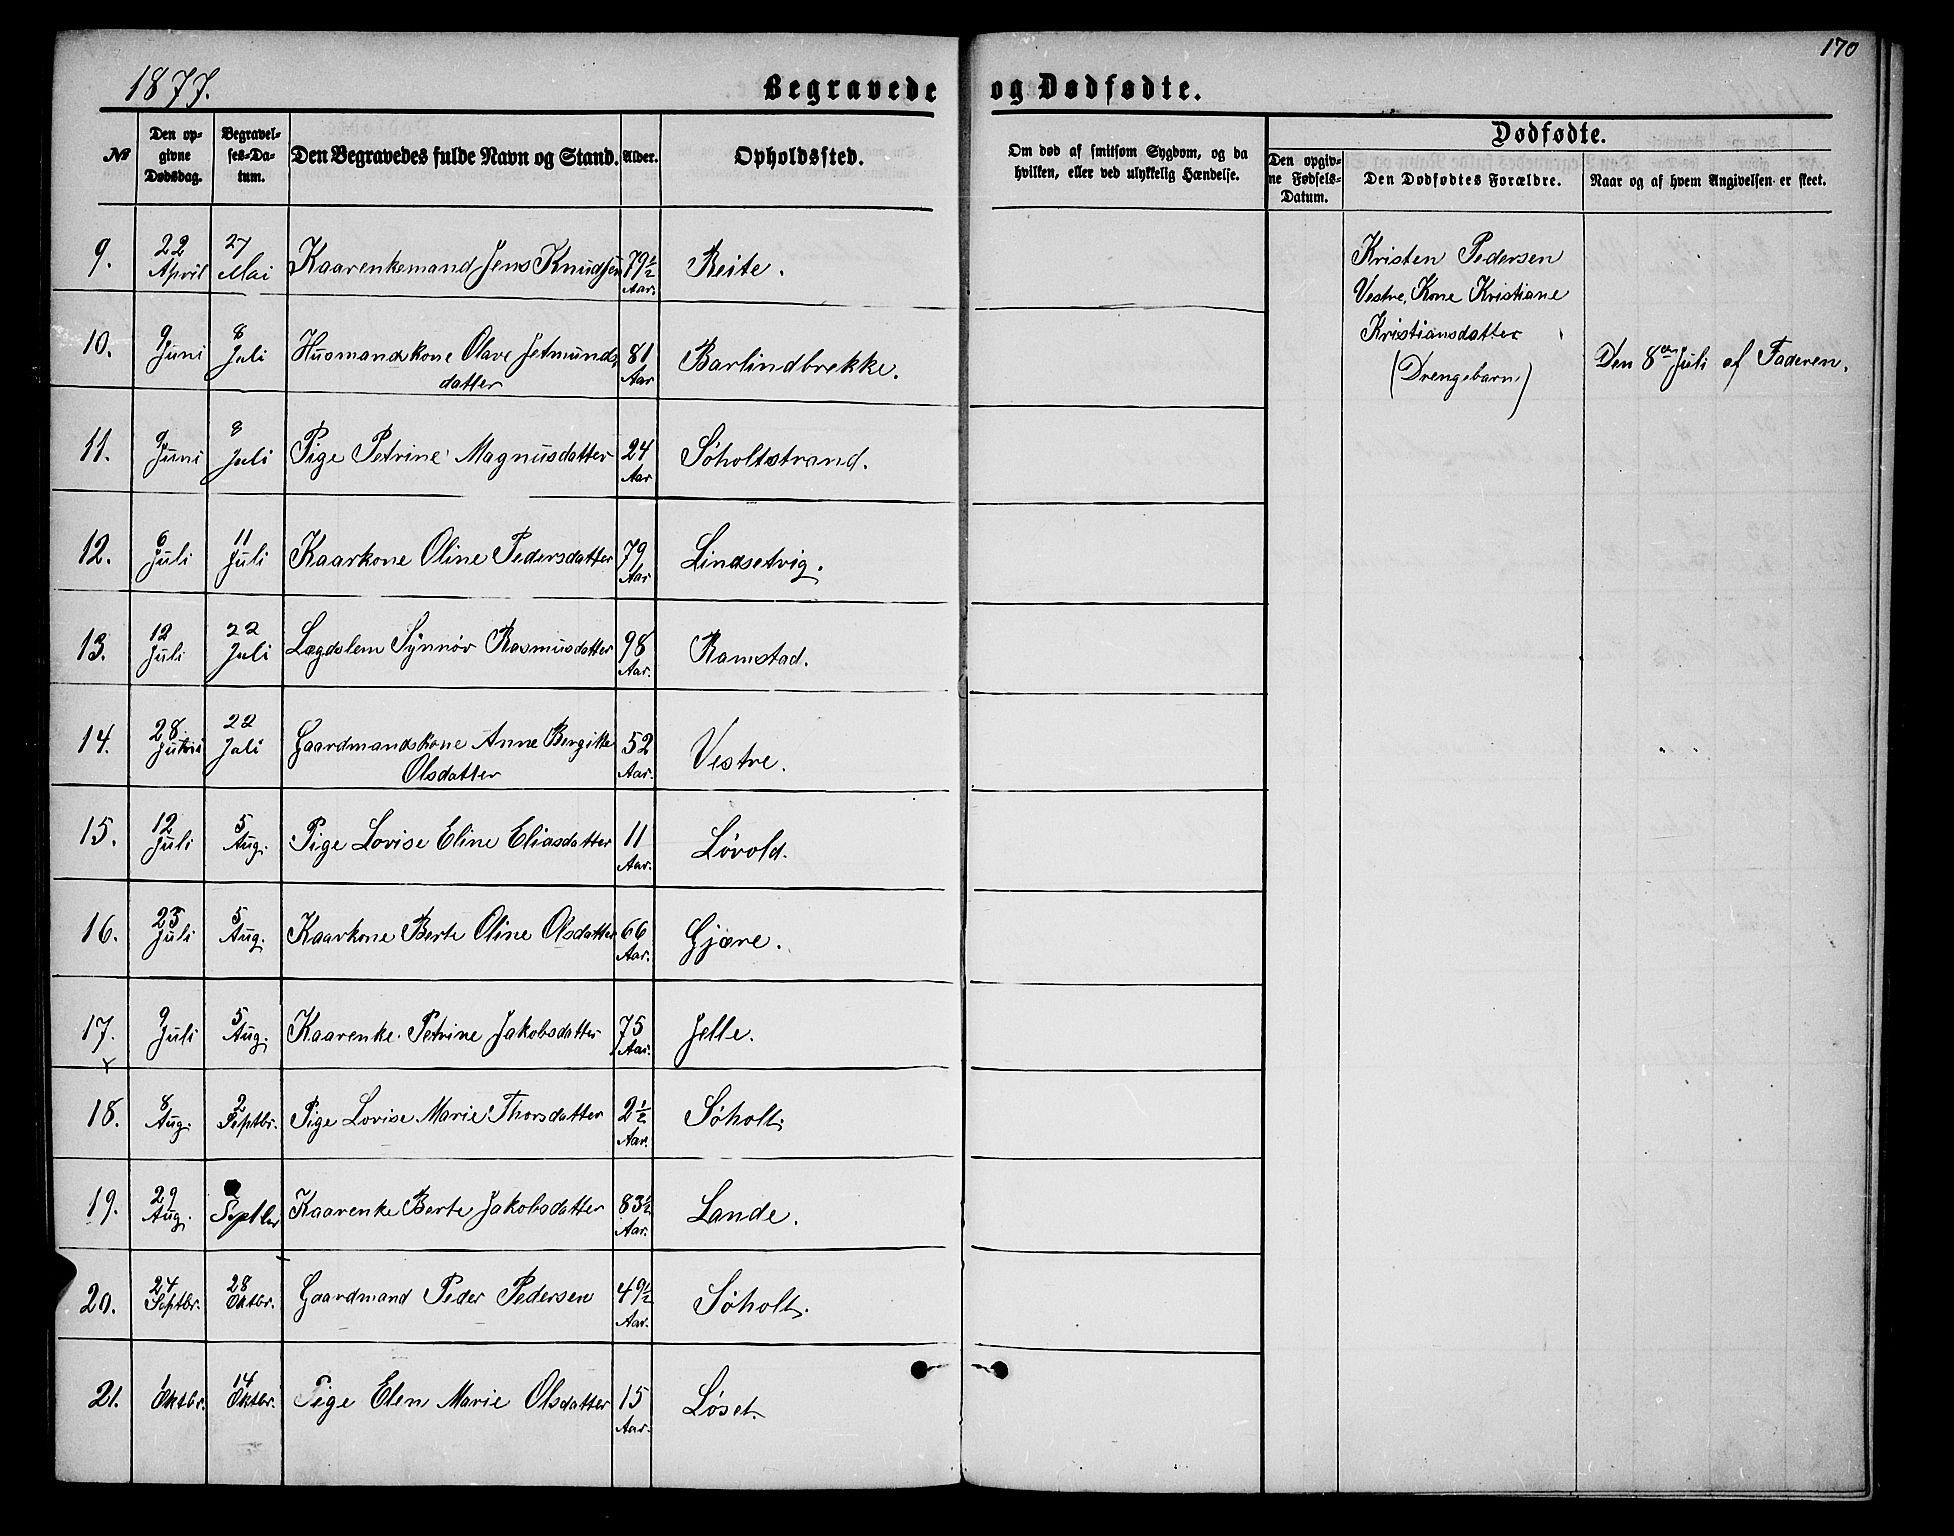 170
1877.
Begravede og Dødfødte.
Dødfødte.
No
Den op-
givne
Dødsdag.
Begravel-
ses-Da-
tum.
Den Begravedes fulde Navn og Stand.
Alder.
Opholdssted.
Om død af smitsom Sygdom, og da
hvilken, eller ved ulykkelig Hændelse.
Den opgiv-
ne Fødsels-
Datum.
Den Dødfødtes Forældre.
Naar og af hvem Angivelsen er skeet.
9. 22 April 27 Mai Kaarenkemand Jens Knudsen 79½ Aar. Reite.
10. 9 Juni 8 Juli Husmandskone Olave Jetmunds
datter 81 Aar Barlindbrekke.
11. 9 Juni 8 Juli Pige Petrine Magnusdatter 24 Aar Søholtstrand.
12. 6 Juli 11 Juli Kaarkone Oline Pedersdatter 79 Aar Lindsetvig.
13. 12 Juli 22 Juli Lægdslem Synnøv Rasmusdatter 98 Aar. Ramstad.
14. 28 22 Juli Gaardmandskone Anne Bergitte
Olsdatter 52 Aar. Vestre.
15. 12 Juli 5 Aug. Pige Lovise Eline Eliasdatter 11 Aar. Løvold.
16. 23 Juli 5 Aug. Kaarkone Berte Oline Olsdatter 66 Aar. Gjære.
17. 9 Juli 5 Aug. Kaarenke Petrine Jakobsdatter 75 Aar. Jelle.
18. 8 Aug. 2 Septbr. Pige Lovise Marie Thorsdatter 2½ Aar. Søholt.
19. 29 Aug. Septbr Kaarenke Berte Jakobsdatter 83½ Aar. Lande.
20. 24 Septbr. 28 Oktbr. Gaardmand Peder Pedersen 49½ Aar. Søholt.
21. 1 Oktbr. 14 Oktbr. Pige Elen Marie Olsdatter 15 Aar. Løset.
Kristen Pedersen
Vestre, Kone Kristiane
Kristiansdatter
(Drengebarn)
Den 8de Juli af Faderen.